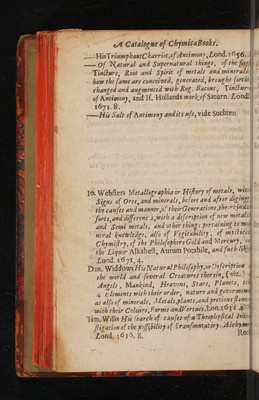 A Catalogue of Chymical Books.
— His Triumphant Charriot, of Antimony, Lond. 1656.
— Of Natural and Supernatural things, of the first
Tincture, Root and Spirit of metals and minerals
how the same are conceived, generated, brought forth
changed and augmented with Rog. Bacons, Tincture
of Antimony, and Is. Hollands work of Saturn. Lond.
1671. 8.
— His Salt of Antimony and its use, vide Suchten.
Jo. Websters Metallographia or History of metals, with
Signs of Ores, and minerals, before and after diging,
the causes and manner of their Generations, the kinds
sorts, and differences, with a description of new metals
and Semi metals, and other things pertaining to mi-
neral knowledge, also of Vegetability, of mystical
Chymistry, of the Philosophers Gold and Mercury,
the Liquor Alkahest, Aurum Potabile, and such like
Lond. 1671, 4.
Dan. Widdows His Natural Philosophy, or Description
the world and several Creatures therein, (viz.)
Angels, Mankind, Heavens, Stars, Planets,
4 elements with their order, nature and government
as also of minerals, Metals, plants, and pretious stones
with their Colours, Forms and Vertues. Lon. 1631 4.
Tim. Willis His search of causes of a Theophysical Inve-
stigation of the possibility of Transmutatory Alchymy
Lond. 1616, 8.